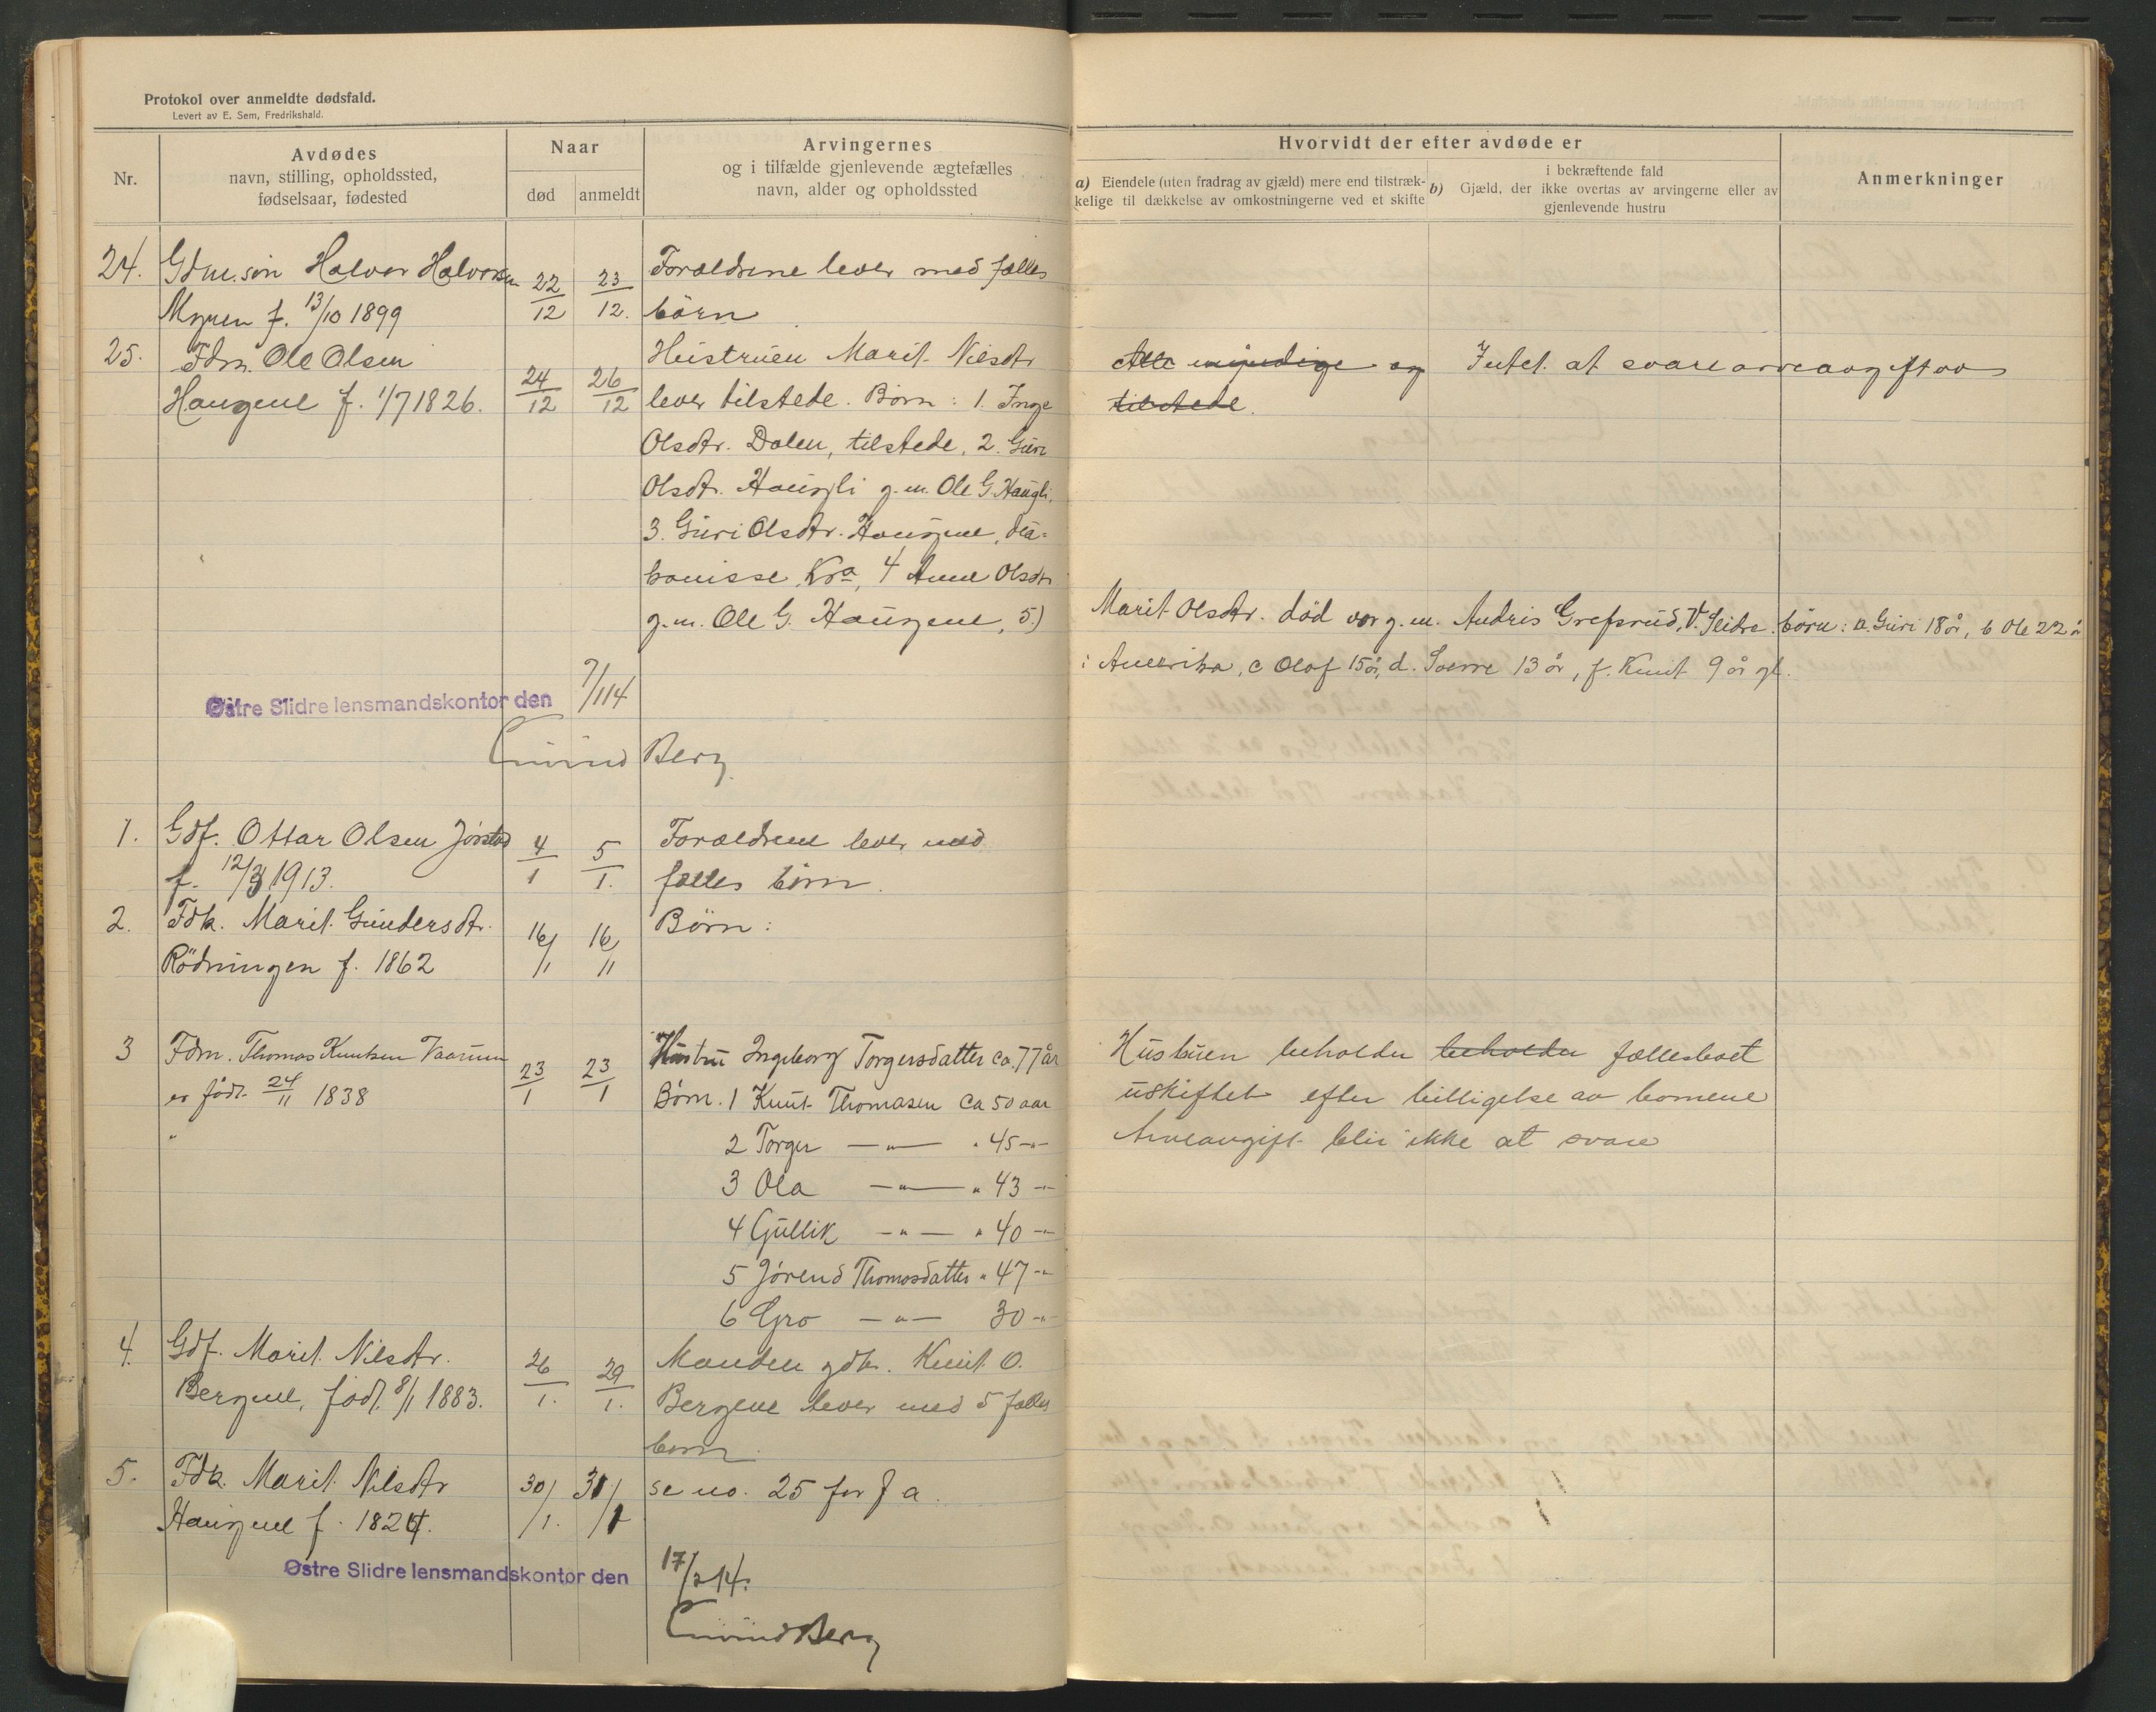 Protokol over anmeldte dødsfald.
Levert av E. Sem, Fredrikshald.
Nr.
Avdødes
navn, stilling, opholdssted,
fødselsaar, fødested
Naar
død
anmeldt
Arvingernes
og i tilfælde gjenlevende ægtefælles
navn, alder og opholdssted
Hvorvidt der efter avdøde er
a) Eiendele (uten fradrag av gjæld) mere end tilstræk-
kelige til dækkelse av omkostningerne ved et skifte
i bekræftende fald
b) Gjæld, der ikke overtas av arvingerne eller av
gjenlevende hustru
Anmerkninger
24. Gdm.søn Halvor Halvorsen 22/12 23/12. Forældrene lever med fælles
Myren f. 13/10 1899 børn
25. Fdm. Ole Olsen 24/12 26/12 Hustruen Marit Nilsdtr
Haugene f. 1/7 1826. lever tilstede. Børn: 1. Inge
Alle myndige og Intet at svare arveavgift av
tilstede.
Olsdtr. Dalen, tilstede, 2. Guri
Olsdtr. Haugli g.m. Ole G. Haugli,
3. Guri Olsdtr. Haugene, dia-
konisse, Kra, 4 Anne Olsdtr
g.m. Ole G. Haugene, 5.)
Marit Olsdtr. død var g.m. Andris Grefsrud, V. Slidre. børn: a. Guri 18 år, b Ole 22 år
i Amerika, c Olaf 15 år, d. Sverre 13 år, f. Knut 9 år gl.
Østre Slidre lensmandskontor den 7/1 14
Eivind Berg
1. Gdf. Ottar Olsen Jørstad 4/1 5/1. Forældrene lever med
f. 12/3 1913. fælles børn.
2. Fdk. Marit Gundersdtr. 16/1 16/11 Børn:
Rødningen f. 1862
3 Fdm. Thomas Knutsen Vaarum 23/1 23/1 Hustru Ingeborg Torgersdatter ca. 77 år
er født 24/11 1838 Børn. 1 Knut Thomasen ca 50 aar
2 Torger — " — " 45 -"-
3 Ola — " — " 43 -"-
4 Gullik — " — " 40 -"-
5 Jørend Thomasdatter " 47 -"-
6 Gro — " — 30 -"-
Hustruen beholder beholder fællesboet
uskiftet efter billigelse av bornene
Arveavgift blir ikke at svare
4. Gdf. Marit Nilsdtr. 26/1. 29/1. Manden gdbr. Knut O.
Bergene, født 8/1 1883. Bergene lever med 5 fælles
børn.
5. Fdk. Marit Nilsdtr 30/1. 31/1 se no. 25 for f a.
Haugene f. 1824.
Østre Slidre lensmandskontor den 17/2 14.
Eivind Berg